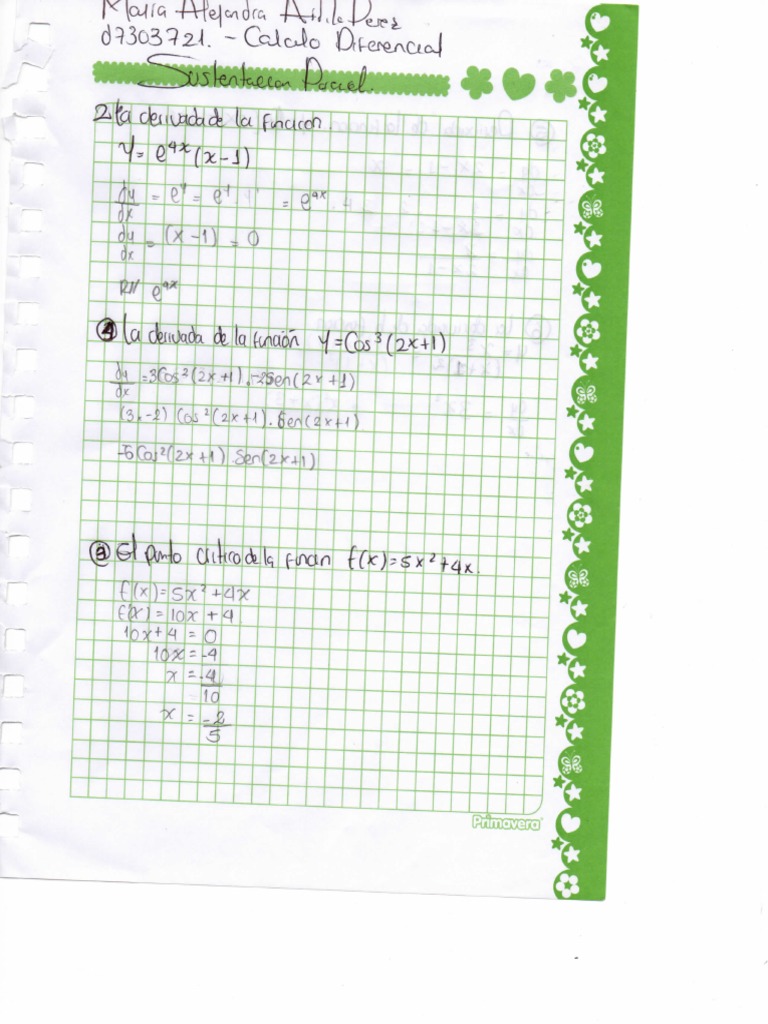 Maria Alejandra Perez
d7303721. - Calculo Diferencial
Sustentacion Parcial.
2. la derivada de la funcion
y = e^4x (x-1)
dy/dx = e^ = e^ = e^4x . 4
dy/dx = (x-1) = 0
R// e^4x
④ La derivada de la función y = Cos³(2x+1)
dy/dx = 3Cos²(2x+1).-2Sen(2x+1)
(3.-2) Cos²(2x+1).Sen(2x+1)
-6Cos²(2x+1).Sen(2x+1)
③ El punto Critico de la funcion f(x)=5x²+4x.
f(x)=5x²+4x
f'(x)=10x+4
10x+4=0
10x=-4
x = -4/10
x = -2/5
Primavera